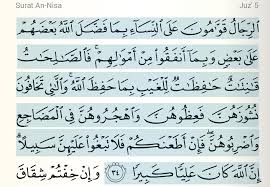 Surat An-Nisa Juz' 5
الرِّجَالُ قَوَّٰمُونَ عَلَى النِّسَآءِ بِمَا فَضَّلَ اللَّهُ بَعْضَهُمْ
عَلَىٰ بَعْضٍ وَبِمَآ أَنفَقُوا۟ مِنْ أَمْوَٰلِهِمْ ۚ فَالصَّٰلِحَٰتُ
قَٰنِتَٰتٌ حَٰفِظَٰتٌ لِّلْغَيْبِ بِمَا حَفِظَ اللَّهُ ۚ وَالَّٰتِى تَخَافُونَ
نُشُوزَهُنَّ فَعِظُوهُنَّ وَاهْجُرُوهُنَّ فِى الْمَضَاجِعِ
وَاضْرِبُوهُنَّ ۖ فَإِنْ أَطَعْنَكُمْ فَلَا تَبْغُوا۟ عَلَيْهِنَّ سَبِيلًا ۗ
إِنَّ اللَّهَ كَانَ عَلِيًّا كَبِيرًا ٣٤ وَإِنْ خِفْتُمْ شِقَاقَ